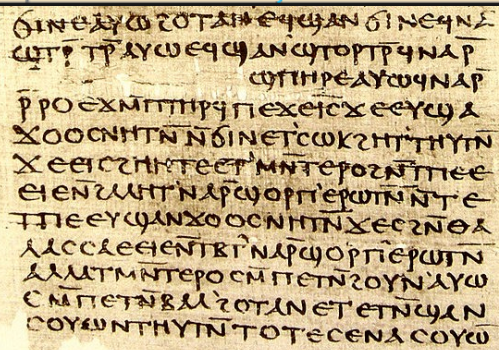 ϭⲓⲛⲉⲁⲩⲱϩⲟⲧⲁⲛⲉϥϣⲁⲛϭⲓⲛⲉϥⲛⲁ
ϣⲧⲣ̅ⲧⲣ̅ⲁⲩⲱⲉϥϣⲁⲛϣⲧⲟⲣⲧⲣ̅ϥⲛⲁⲣ̅
ϣⲡⲏⲣⲉⲁⲩⲱϥⲛⲁⲣ̅
ⲣ̅ⲣⲟⲉϫⲙ̅ⲡⲧⲏⲣϥⲡⲉϫⲉⲓ̅ⲥ̅ϫⲉⲉⲩϣⲁ
ϫⲟⲟⲥⲛⲏⲧⲛ̅ⲛ̅ϭⲓⲛⲉⲧ'ⲥⲱⲕϩⲏⲧ'ⲧⲏⲩⲧⲛ̅
ϫⲉⲉⲓⲥϩⲏⲏⲧⲉⲉⲧ'ⲙⲛ̅ⲧⲉⲣⲟϩⲛ̅ⲧⲡⲉⲉ
ⲉⲓⲉⲛ̅ϩⲁⲗⲏⲧ'ⲛⲁⲣ̅ϣⲟⲣⲡ'ⲉⲣⲱⲧⲛ̅ⲛ̅ⲧⲉ
ⲧⲡⲉⲉⲩϣⲁⲛϫⲟⲟⲥⲛⲏⲧⲛ̅ϫⲉⲥϩⲛ̅ⲑⲁ
ⲗⲁⲥⲥⲁⲉⲉⲓⲉⲛ̅ⲧⲃⲧ'ⲛⲁⲣ̅ϣⲟⲣⲡ'ⲉⲣⲱⲧⲛ̅
ⲁⲗⲗⲁⲧⲙⲛ̅ⲧⲉⲣⲟⲥⲙ̅ⲡⲉⲧⲛ̅ϩⲟⲩⲛⲁⲩⲱ
ⲥⲙ̅ⲡⲉⲧⲛ̅ⲃⲁⲗϩⲟⲧⲁⲛⲉⲧⲉⲧⲛ̅ϣⲁⲛ
ⲥⲟⲩⲱⲛⲧⲏⲩⲧⲛ̅ⲧⲟⲧⲉⲥⲉⲛⲁⲥⲟⲩⲱ